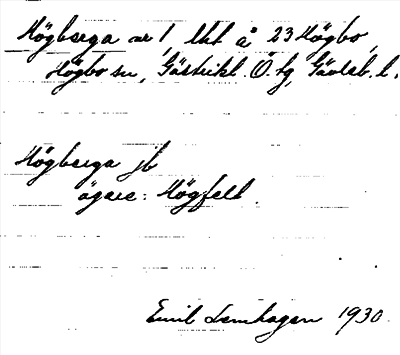 Högberga av 1 lht å 23 Högbo,
Högbo sn, Gästrikl. Ö. tg, Gävleb. l.
Högberga jb
ägare: Högfelt.
Emil Lemhagen 1930